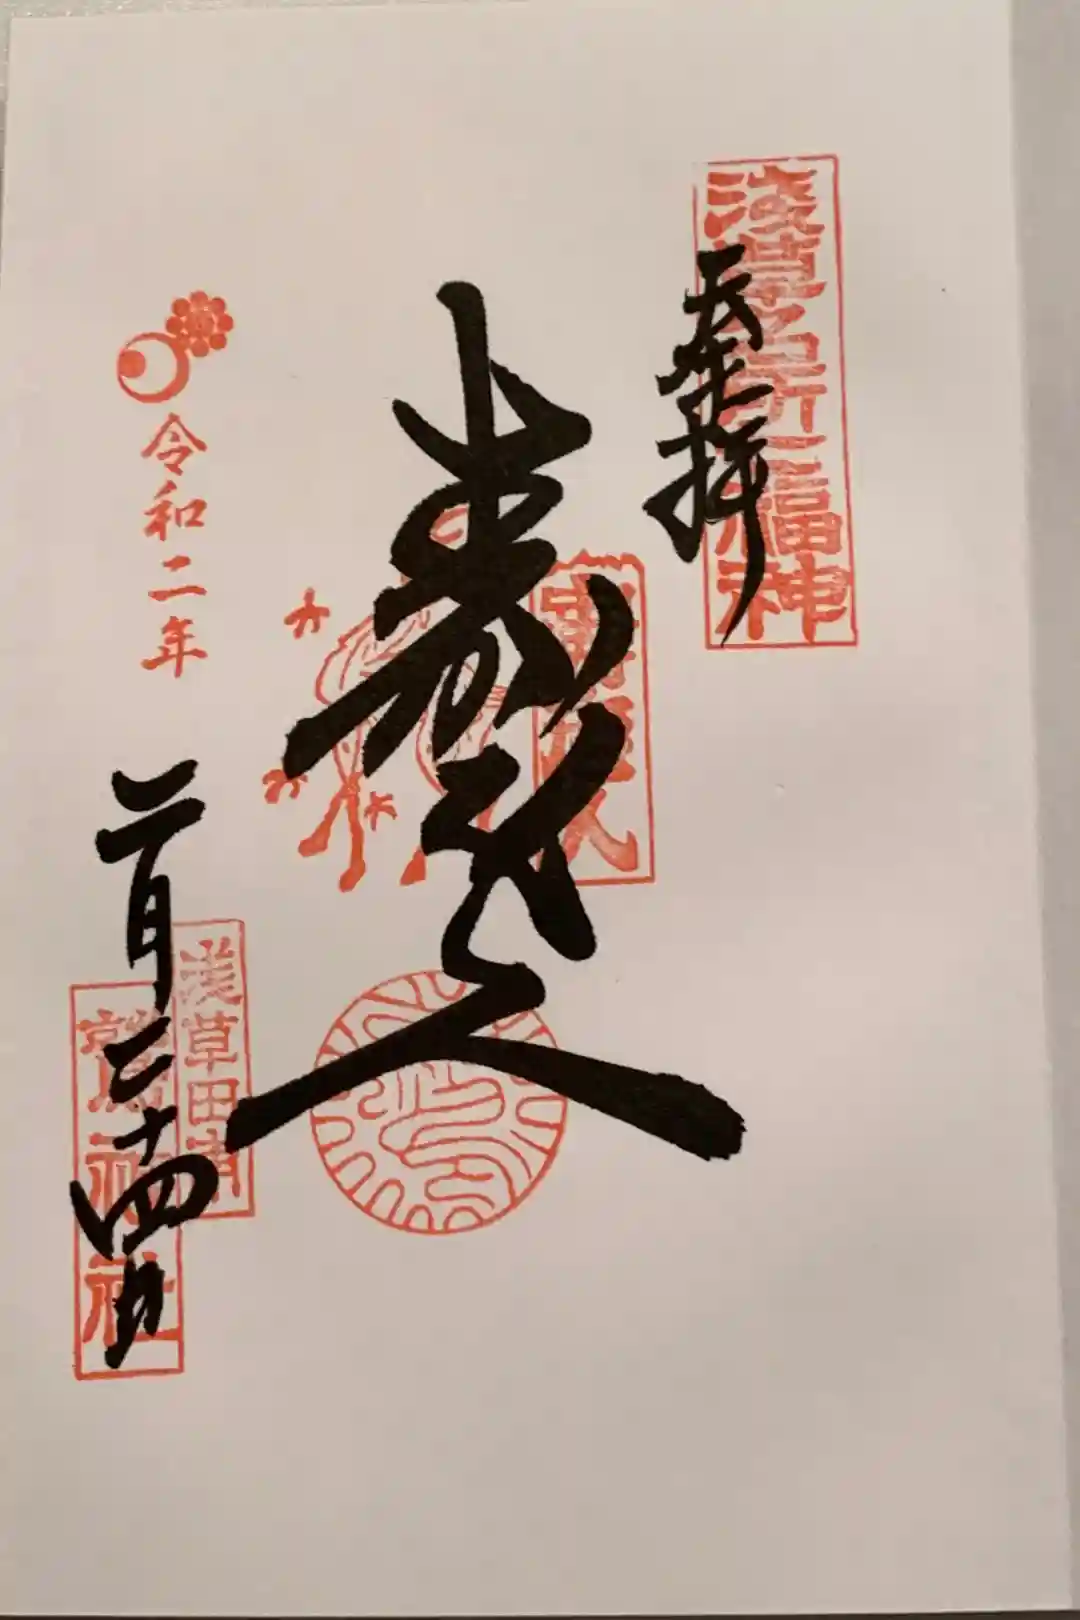 淺草名所七福神
奉拝
壽老人
壽老人
令和二年
二月二十四日
浅草田甫
鷲神社